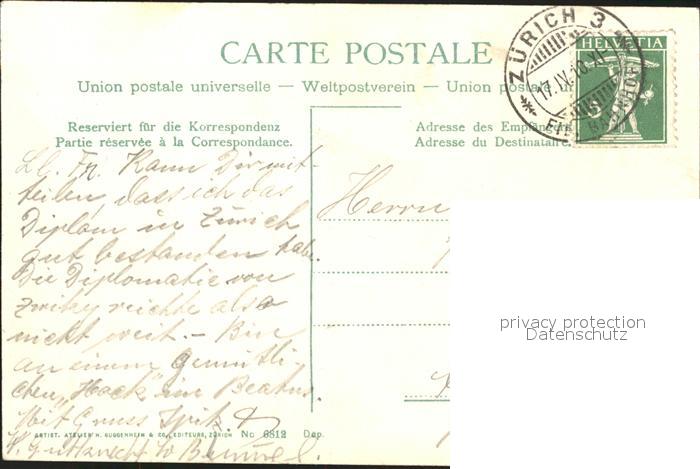 CARTE POSTALE
Union postale universelle — Weltpostverein — Union postale un
ZÜRICH 3
17.IV.10.XI
HELVETIA
5
Reserviert für die Korrespondenz
Partie réservée à la Correspondance.
Adresse des Empfängers
Adresse du Destinataire.
Lb. Fr. Kann Dir mit-
teilen, dass ich das
Diplom in Zürich
gut bestanden habe.
Die Diplomatie von
Zwiky reichte also
nicht weit. – Bin
an einem gemütli-
chen „Hock" im Beatus.
Mit Gruss Spitz
Herrn
ARTIST. ATELIER H. GUGGENHEIM & CO., EDITEURS, ZÜRICH No 6812 Dep.
privacy protection
Datenschutz